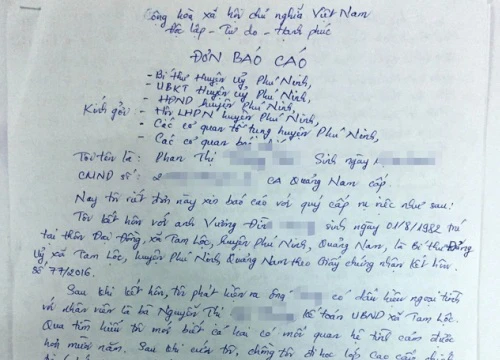 Cộng hòa xã hội chủ nghĩa Việt Nam
Độc lập - Tự do - Hạnh phúc
ĐƠN BÁO CÁO
- Bí thư Huyện ủy Phú Ninh,
- UBKT Huyện ủy Phú Ninh,
- HĐND huyện Phú Ninh,
Kính gởi: - Hội LHPN huyện Phú Ninh,
- Các cơ quan tố tụng huyện Phú Ninh,
- Các cơ quan
Tôi tên là: Phan Thị Sinh ngày
CMND số: 2 CA Quảng Nam cấp.
Nay tôi viết đơn này xin báo cáo với quý cấp ra việc như sau:
Tôi kết hôn với anh Vương sinh ngày 01/8/1982 trú
tại thôn Đại Đồng, xã Tam Lộc, huyện Phú Ninh, Quảng Nam, là Bí thư Đảng
ủy xã Tam Lộc, huyện Phú Ninh, Quảng Nam theo Giấy chứng nhận kết hôn.
Số 77/2016.
Sau khi kết hôn, tôi phát hiện ra ông có dấu hiệu ngoại tình
với nhân viên là bà Nguyễn Thị kế toán UBND xã Tam Lộc.
Qua tìm hiểu tôi mới biết cả hai có mối quan hệ tình cảm được
hơn mười năm. Sau khi cưới tôi, chồng tôi đi học